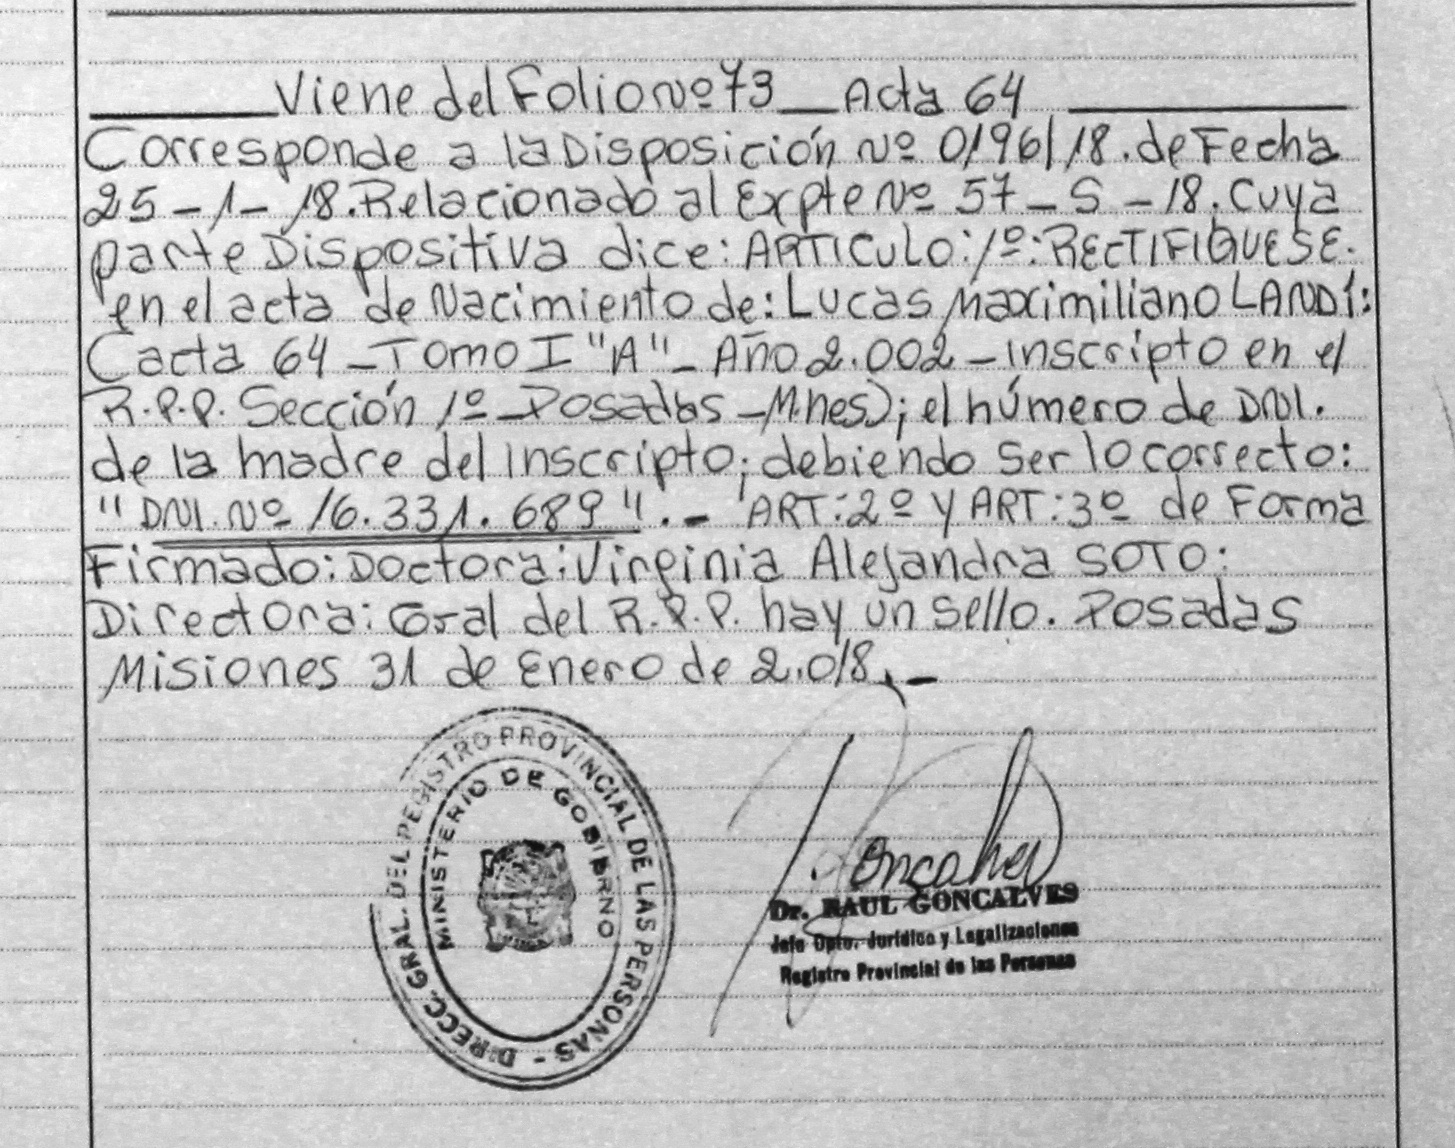 Viene del Folio Nº 73 __ Acta 64
Corresponde a la Disposición Nº 0196/18. de Fecha
25-1-18. Relacionado al Expte Nº 57-S-18. Cuya
parte Dispositiva dice: ARTICULO: 1º: RECTIFIQUESE.
en el acta de Nacimiento de: Lucas Maximiliano LANDI:
(acta 64 - Tomo I "A" - Año 2.002 - inscripto en el
R.P.P. Sección 1º - Posadas - Mnes); el número de DNI.
de la madre del inscripto; debiendo ser lo correcto:
"DNI. Nº 16.331.689".- ART: 2º Y ART: 3º de Forma
Firmado: Doctora: Virginia Alejandra SOTO:
Directora: Gral del R.P.P. hay un sello. Posadas
Misiones 31 de Enero de 2.018.-
DIRECC. GRAL. DEL REGISTRO PROVINCIAL DE LAS PERSONAS -
MINISTERIO DE GOBIERNO
Dr. RAUL GONCALVES
Jefe Dpto. Jurídico y Legalizaciones
Registro Provincial de las Personas